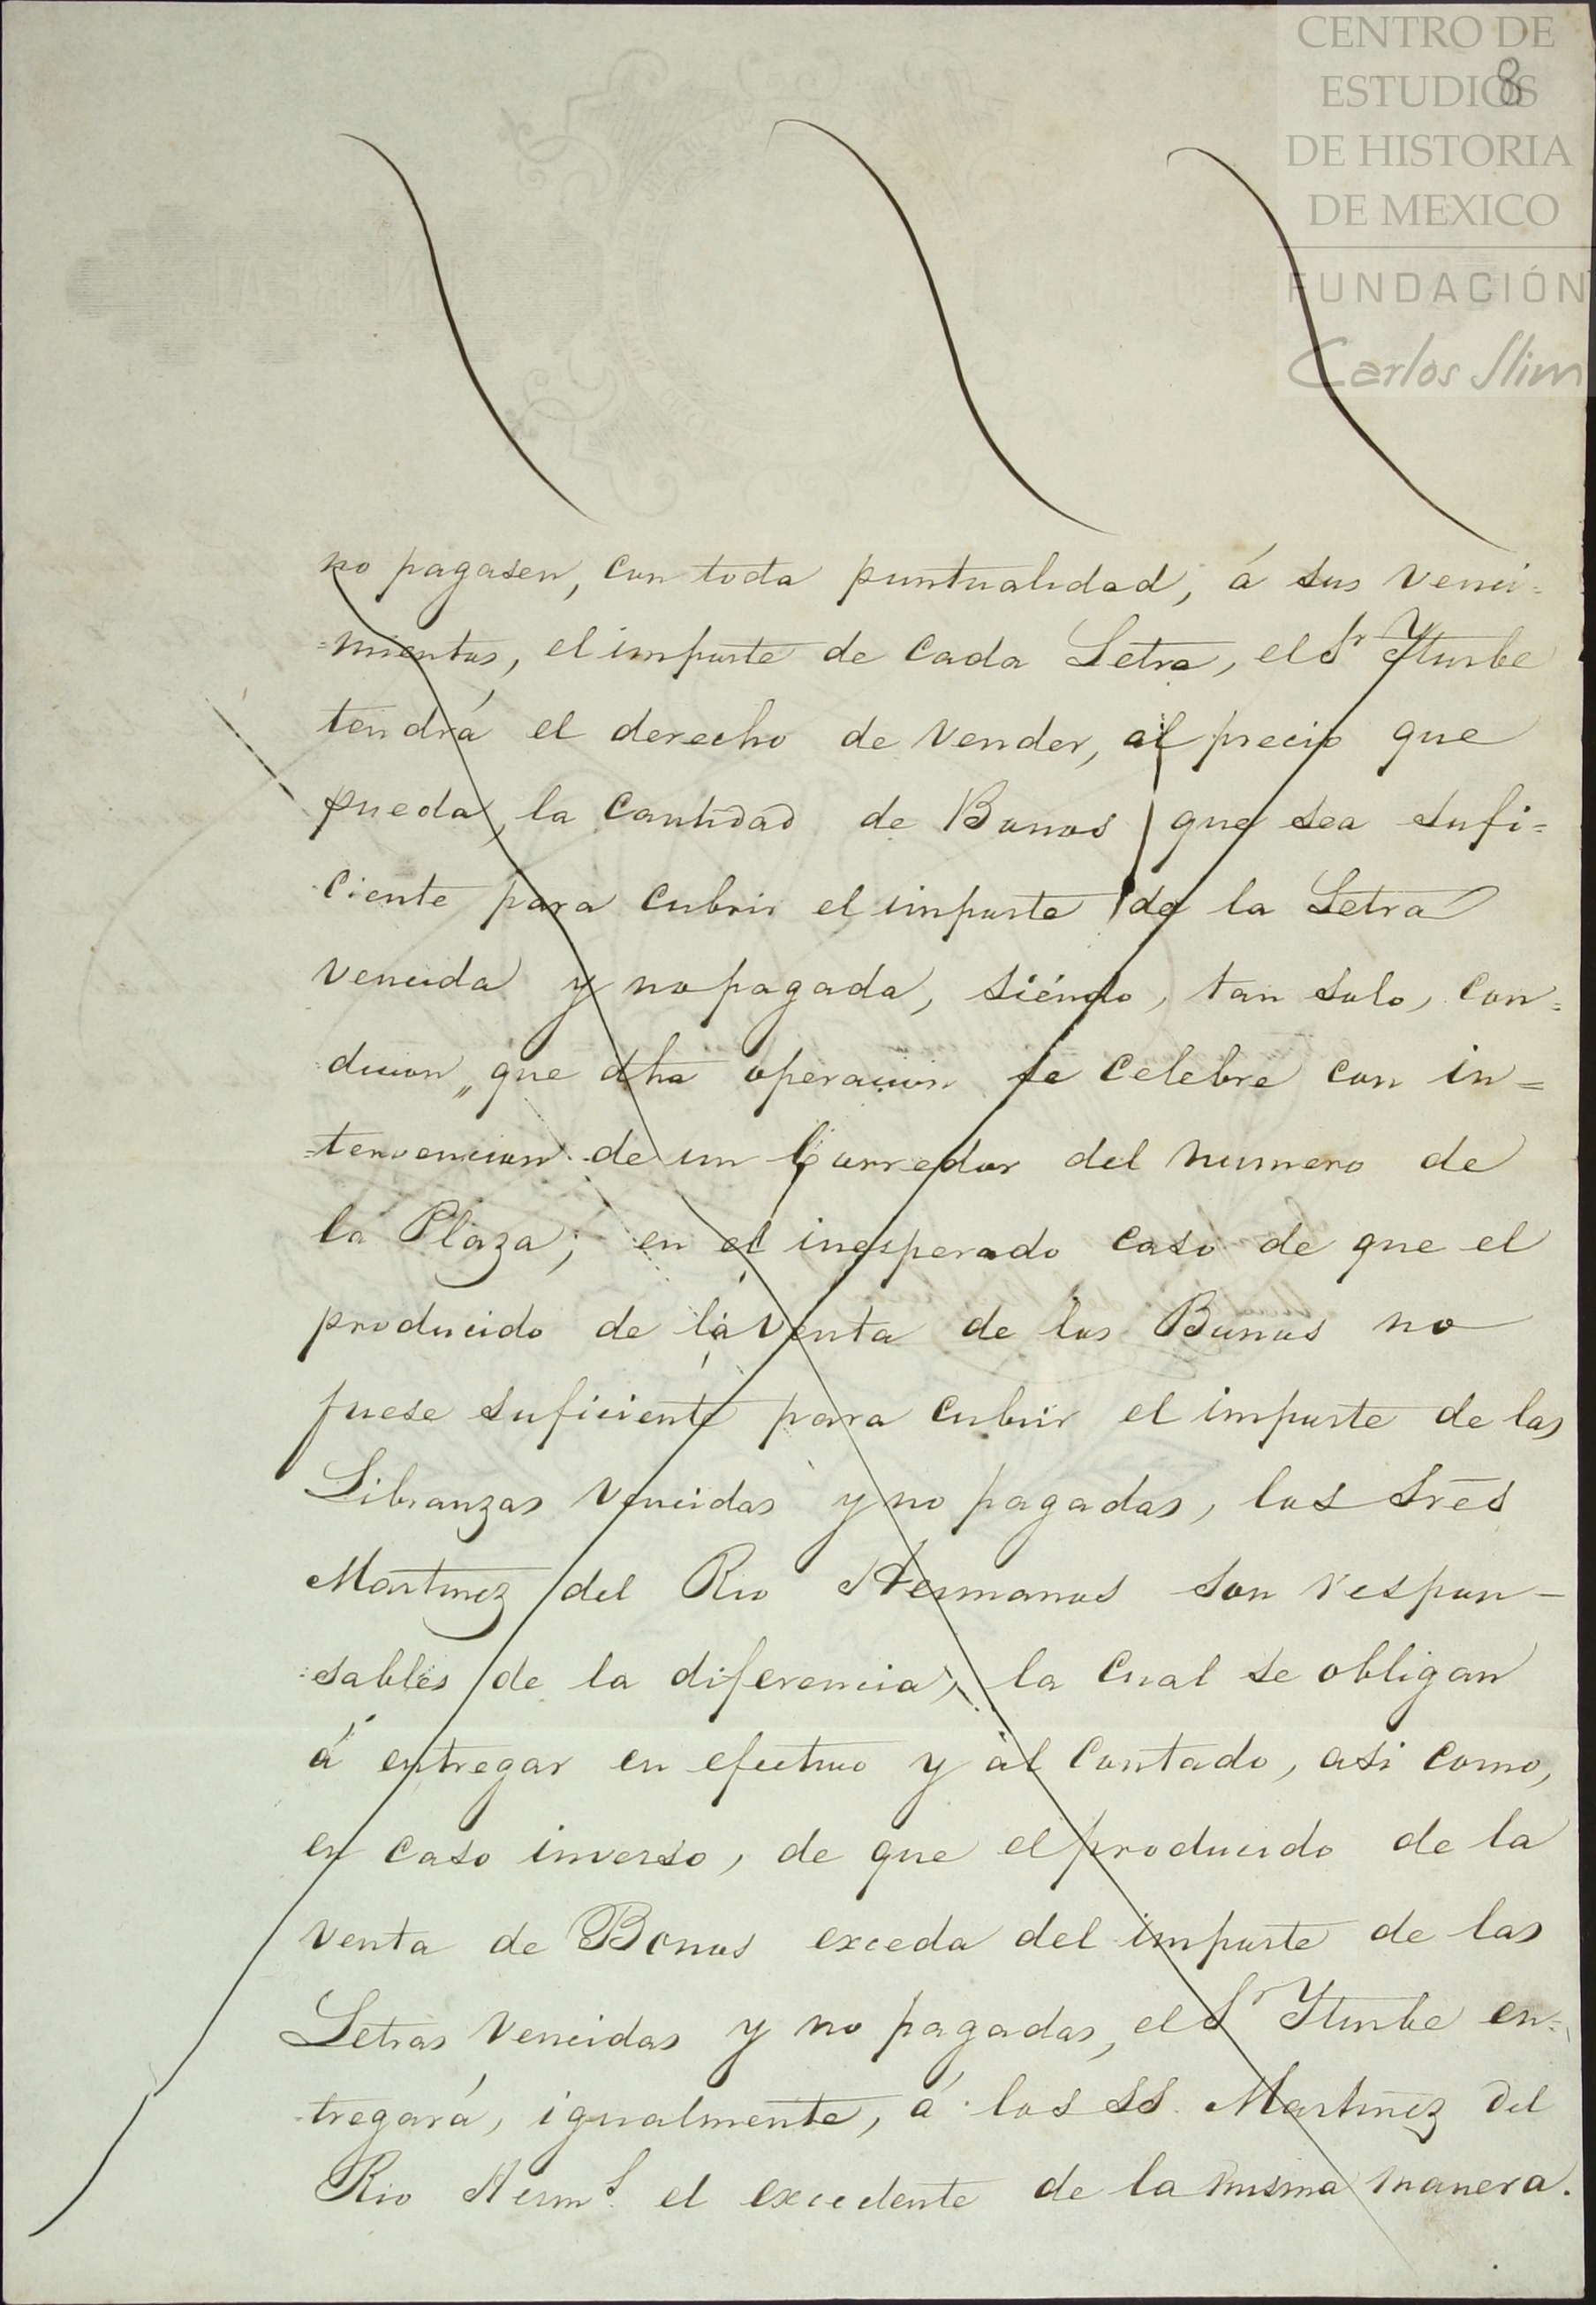 CENTRO DE
ESTUDIOS
DE HISTORIA
DE MEXICO
FUNDACIÓN
Carlos Slim
8
no pagasen, con toda puntualidad, á sus venci=
=mientos, el importe de cada Letra, el Sr Yturbe
tendrá el derecho de vender, al precio que
pueda, la cantidad de Bonos que sea sufi=
ciente para cubrir el importe de la Letra
vencida y no pagada, siéndo, tan solo, con=
dicion,, que dha operacion se celebre con in=
=tervencion de un Corredor del numero de
la Plaza; en el inesperado caso de que el
producido de la venta de los Bonos no
fuese suficiente para cubrir el importe de las
Libranzas vencidas y no pagadas, los Sres
Martinez del Rio Hermanos son respon-
sables de la diferencia, la cual se obligan
á entregar en efectivo y al contado, asi como,
en caso inverso, de que el producido de la
venta de Bonos exceda del importe de las
Letras vencidas y no pagadas, el Sr Yturbe en=
tregará, igualmente, á los SS. Martinez del
Rio Herms. el excedente de la misma manera.